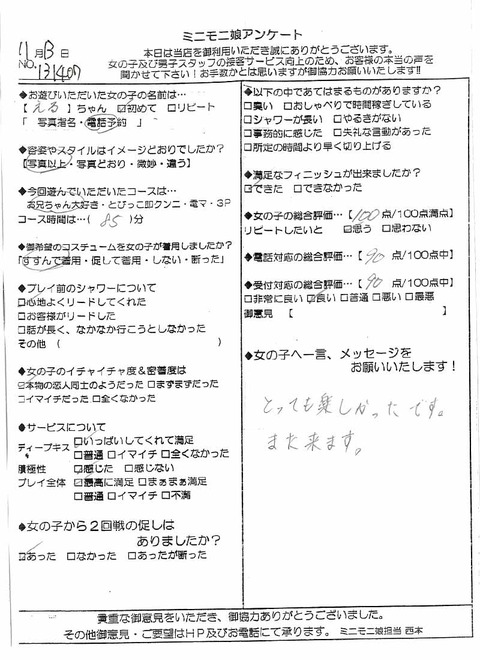 ミニモニ娘アンケート
11月13日
NO.131407
本日は当店を御利用いただき誠にありがとうございます。
女の子及び男子スタッフの接客サービス向上のため、お客様の本当の声を
聞かせて下さい!お手数かとは思いますが御協力お願いいたします!!
◆お遊びいただいた女の子の名前は…
【 える 】ちゃん ☑初めて □リピート
「 写真指名・電話予約 」
◆容姿やスタイルはイメージとおりでしたか?
【写真以上・写真どおり・微妙・違う】
◆今回遊んでいただいたコースは…
お兄ちゃん大好き・とびっこ即クンニ・電マ・3P
コース時間は…( 85 )分
◆御希望のコスチュームを女の子が着用しましたか?
「すすんで着用・促して着用・しない・断った」
◆プレイ前のシャワーについて
□心地よくリードしてくれた
□お客様がリードした
□話が長く、なかなか行こうとしなかった
その他 ( )
◆女の子のイチャイチャ度&密着度は
☑本物の恋人同士のようだった □まずまずだった
□イマイチだった □全くなかった
◆サービスについて
ディープキス ☑いっぱいしてくれて満足
□普通 □イマイチ □全くなかった
積極性 ☑感じた □感じない
プレイ全体 ☑最高に満足 □まぁまぁ満足
□普通 □イマイチ □不満
◆女の子から2回戦の促しは
ありましたか?
☑あった □なかった □あったが断った
◆以下の中であてはまるものがありますか?
□臭い □おしゃべりで時間稼ぎしている
□シャワーが長い □やるきがない
□事務的に感じた □失礼な言動があった
□所定の時間より早く切り上げる
◆満足なフィニッシュが出来ましたか?
☑できた □できなかった
◆女の子の総合評価…【100点/100点満点】
リピートしたいと ☑思う □思わない
◆電話対応の総合評価…【 90 点/100点中】
◆受付対応の総合評価…【 90 点/100点中】
□非常に良い ☑良い □普通 □悪い □最悪
御意見 【 】
◆女の子へ一言、メッセージを
お願いいたします!
とっても楽しかったです。
また来ます。
貴重な御意見をいただき、御協力ありがとうございました。
その他御意見・ご要望はHP及びお電話にて承ります。 ミニモニ娘担当 西本